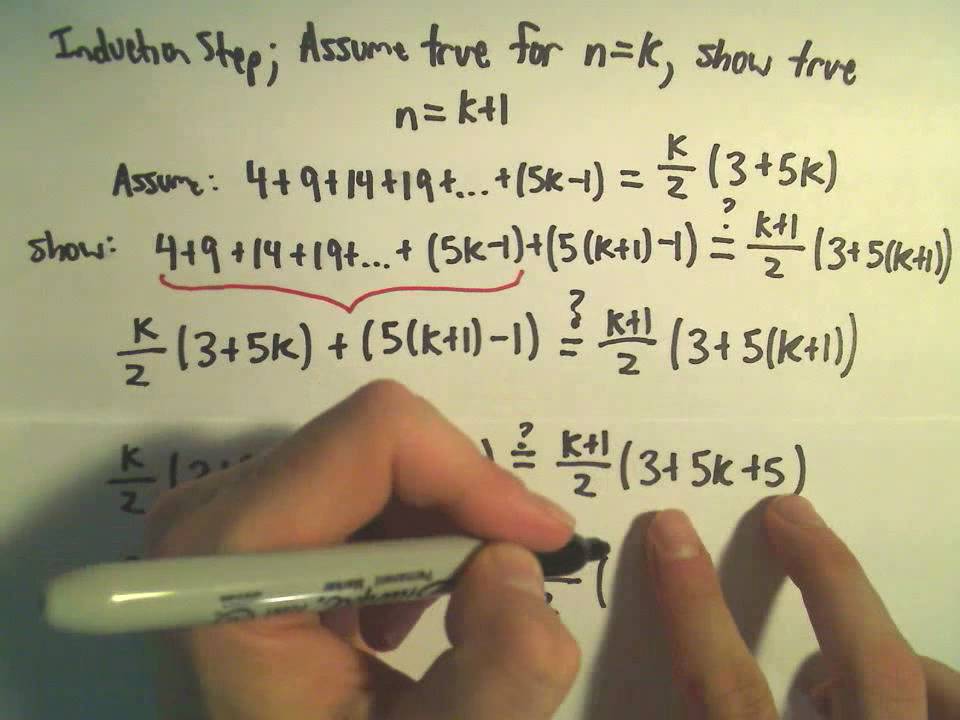 Induction Step; Assume true for n=k, show true
n=k+1
Assume: 4+9+14+19+...+(5k-1) = k/2 (3+5k)
show: 4+9+14+19+...+(5k-1)+(5(k+1)-1) ?= k+1/2 (3+5(k+1))
k/2 (3+5k)+(5(k+1)-1) ?= k+1/2 (3+5(k+1))
k/2 ( ) ?= k+1/2 (3+5k+5)
(
Permanent
Marker